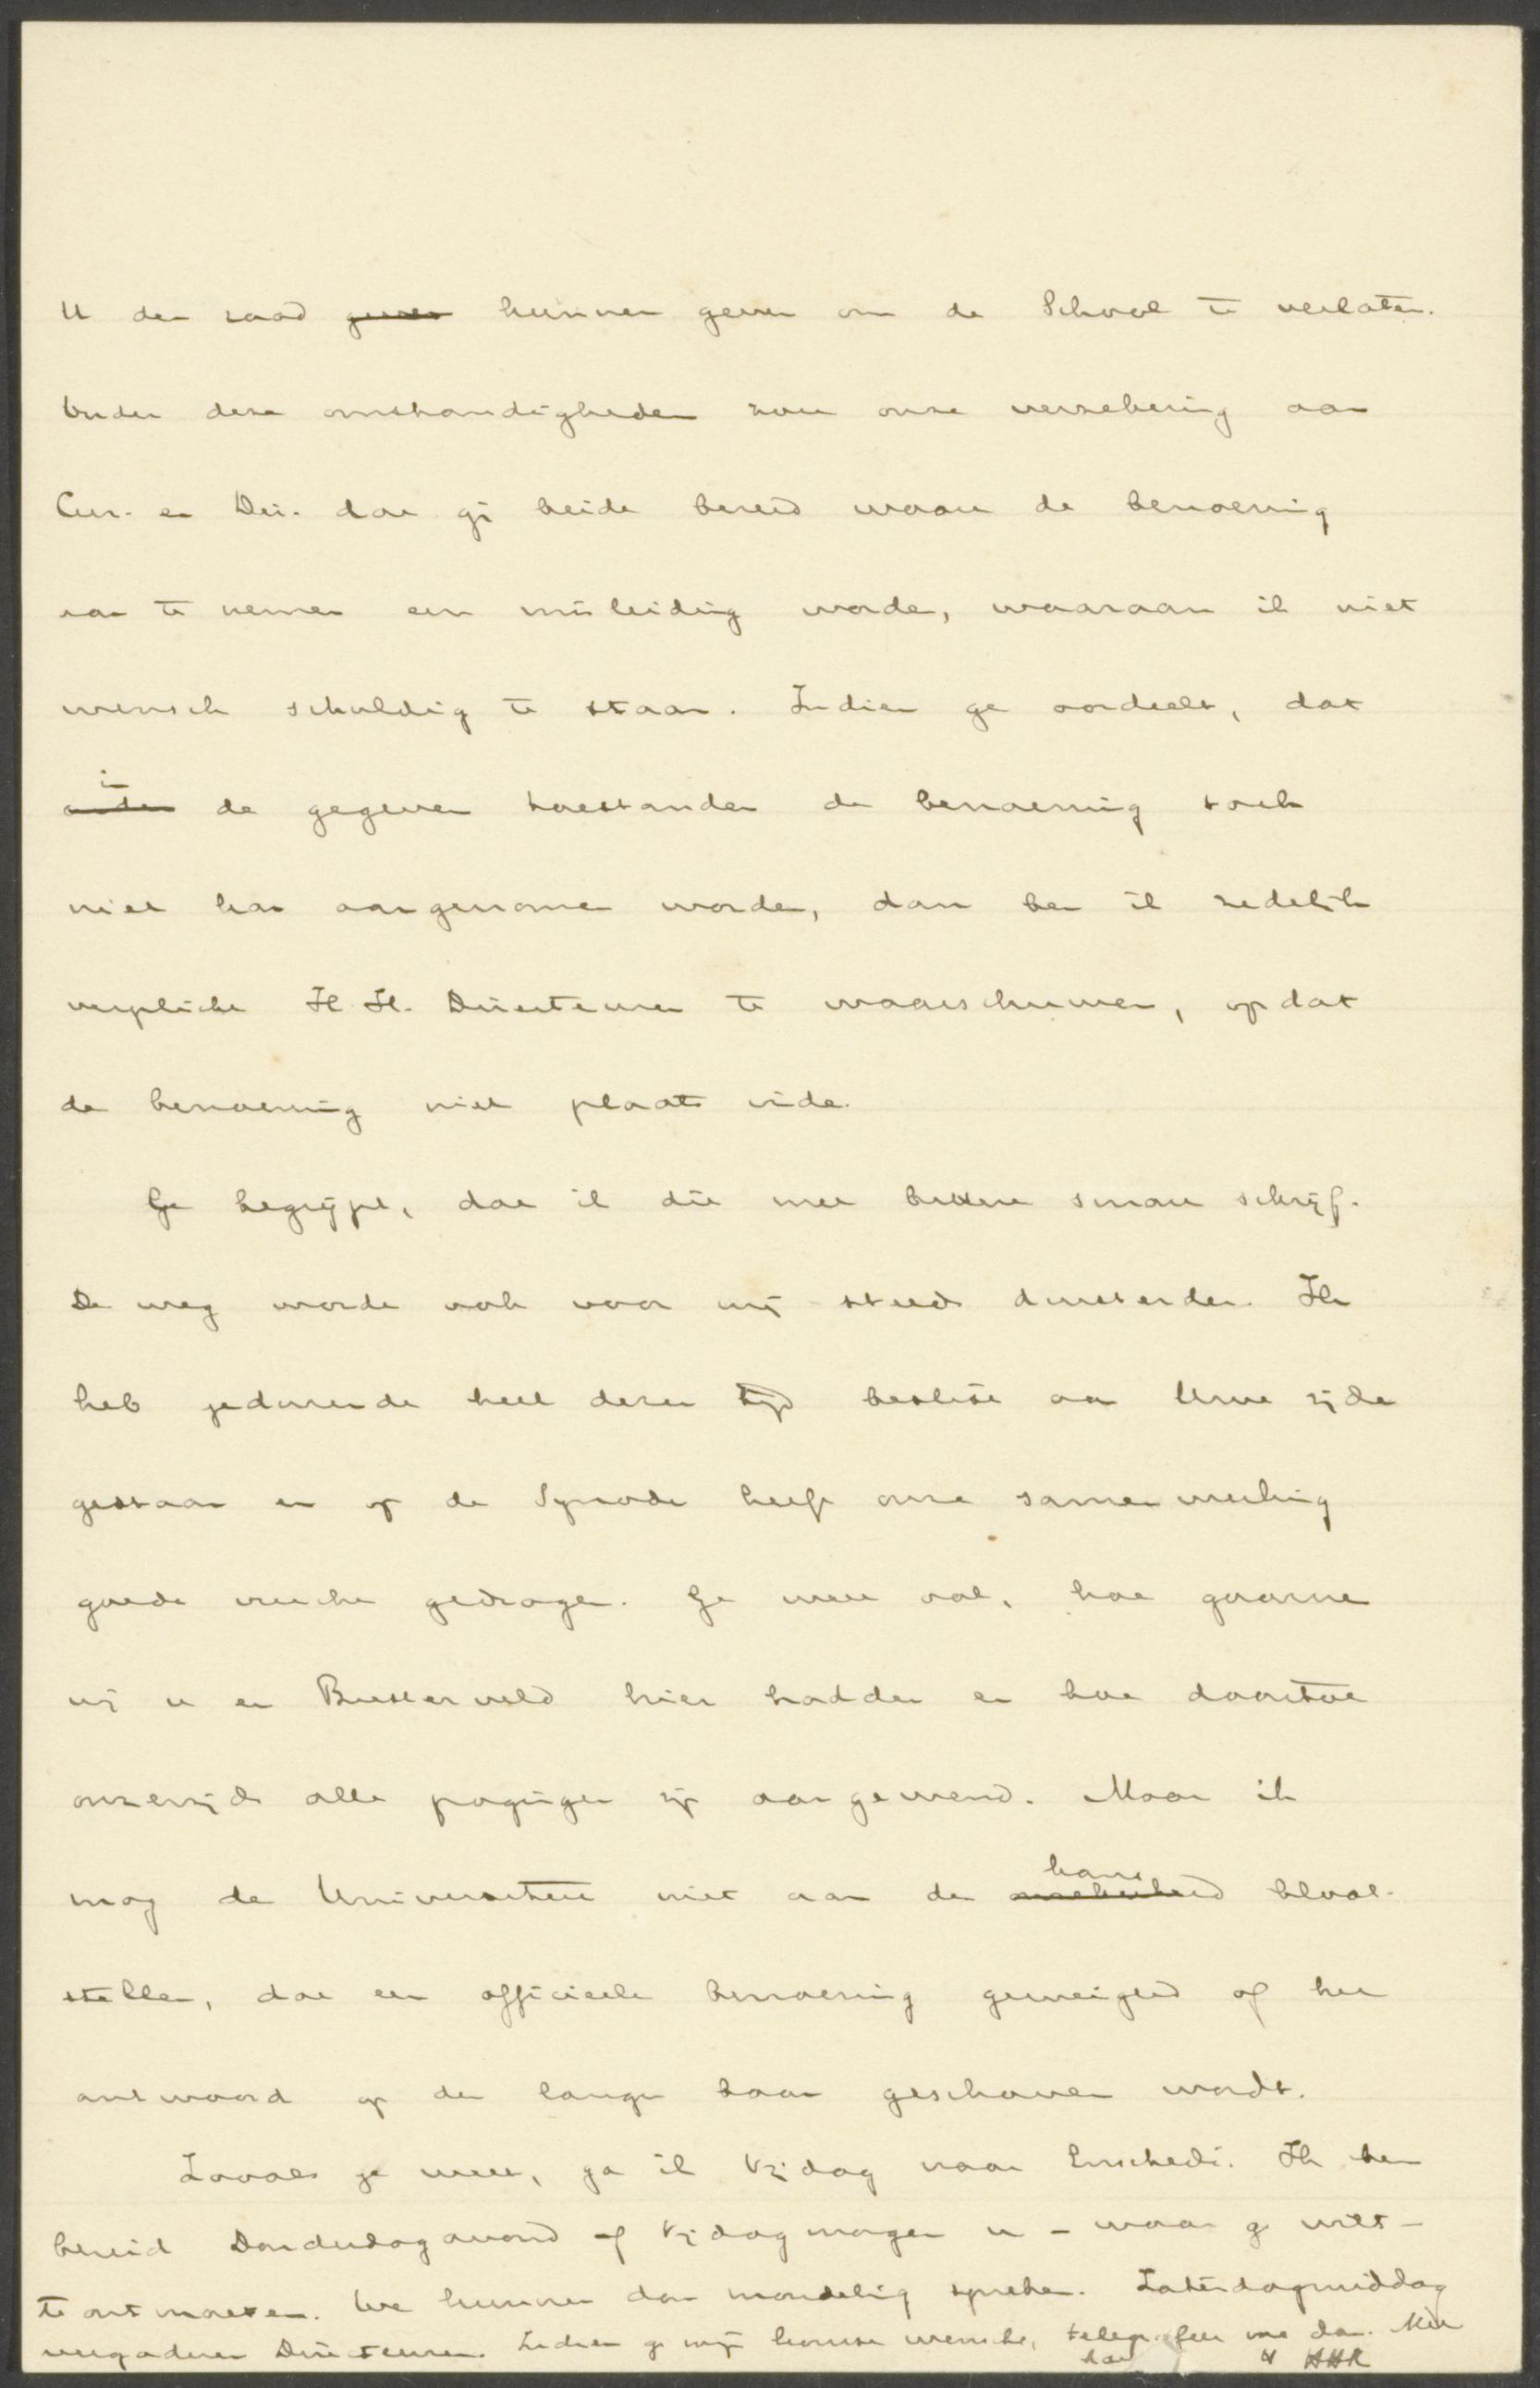 U den raad geven kunnen geven om de School te verlaten.
Onder deze omstandigheden zou onze verzekering aan
Cur. en Dir. dat gij beide bereid waart de benoeming
aan te nemen een misleiding worden, waaraan ik niet
wensch schuldig te staan. Indien ge oordeelt, dat
in
onder de gegeven toestanden de benoeming toch
niet kan aangenomen worden, dan ben ik zedelijk
verplicht H.H. Directeuren te waarschuwen, opdat
de benoeming niet plaats vinde.
Ge begrijpt, dat ik dit met bittere smart schrijf.
De weg wordt ook voor mij steeds duisterder. Ik
heb gedurende heel dezen tijd beslist aan Uwe zijde
gestaan en op de Synode heeft onze samenwerking
goede vrucht gedragen. Ge weet ook, hoe gaarne
wij u en Biesterveld hier hadden en hoe daartoe
onzerzijds alle pogingen zijn aangewend. Maar ik
kans
mog de Universiteit niet aan de bloot-
stellen, dat een officieele benoeming geweigerd of het
antwoord op de lange baan geschoven wordt.
Zooals ge weet, ga ik Vrijdag naar Enschedé. Ik ben
bereid Donderdagavond of Vrijdagmorgen u – waar ge wilt –
te ontmoeten. We kunnen dan mondeling spreken. Zaterdagmiddag
vergaderen Directeuren. Indien ge mijn komst wenscht, telegrafeer me dan. Met
HHK